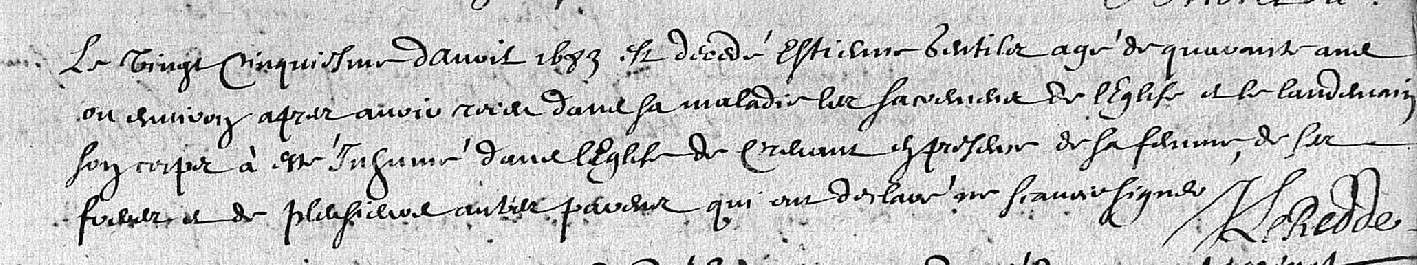 Le vingt cinquiesme d'avoit 1683 est decedé Estienne Gentilz agé de quarante ans
ou environ apres avoir receu dans sa maladie les sacremens de l'Eglise et le landemain
son corps à esté Inhumé dans l'Eglise de Crevant en presence de sa femme, de ses
freres et de plusieurs autres parens qui ont declaré ne sçavoir signer